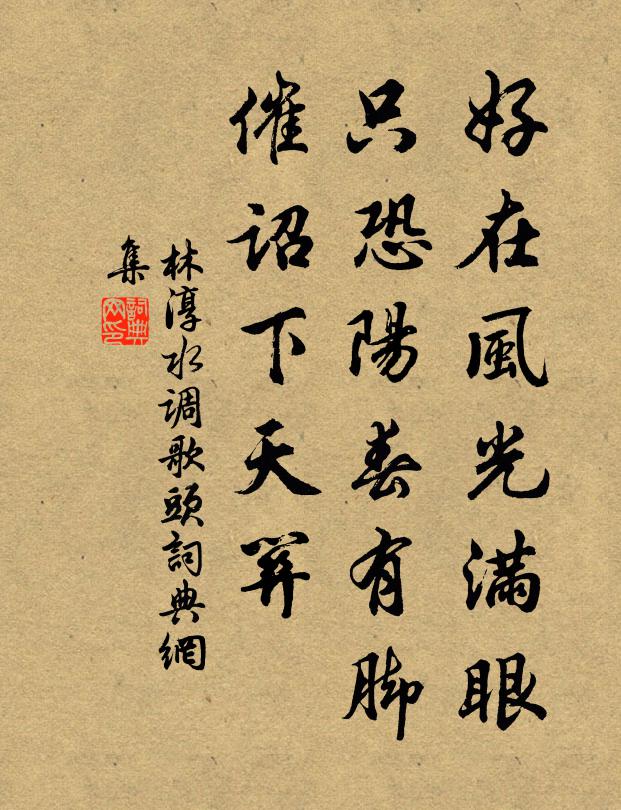 好在風光滿眼
只恐陽春有脚
催詔下天葬
林淳水调歌頭詞典網
集
詞典
网印